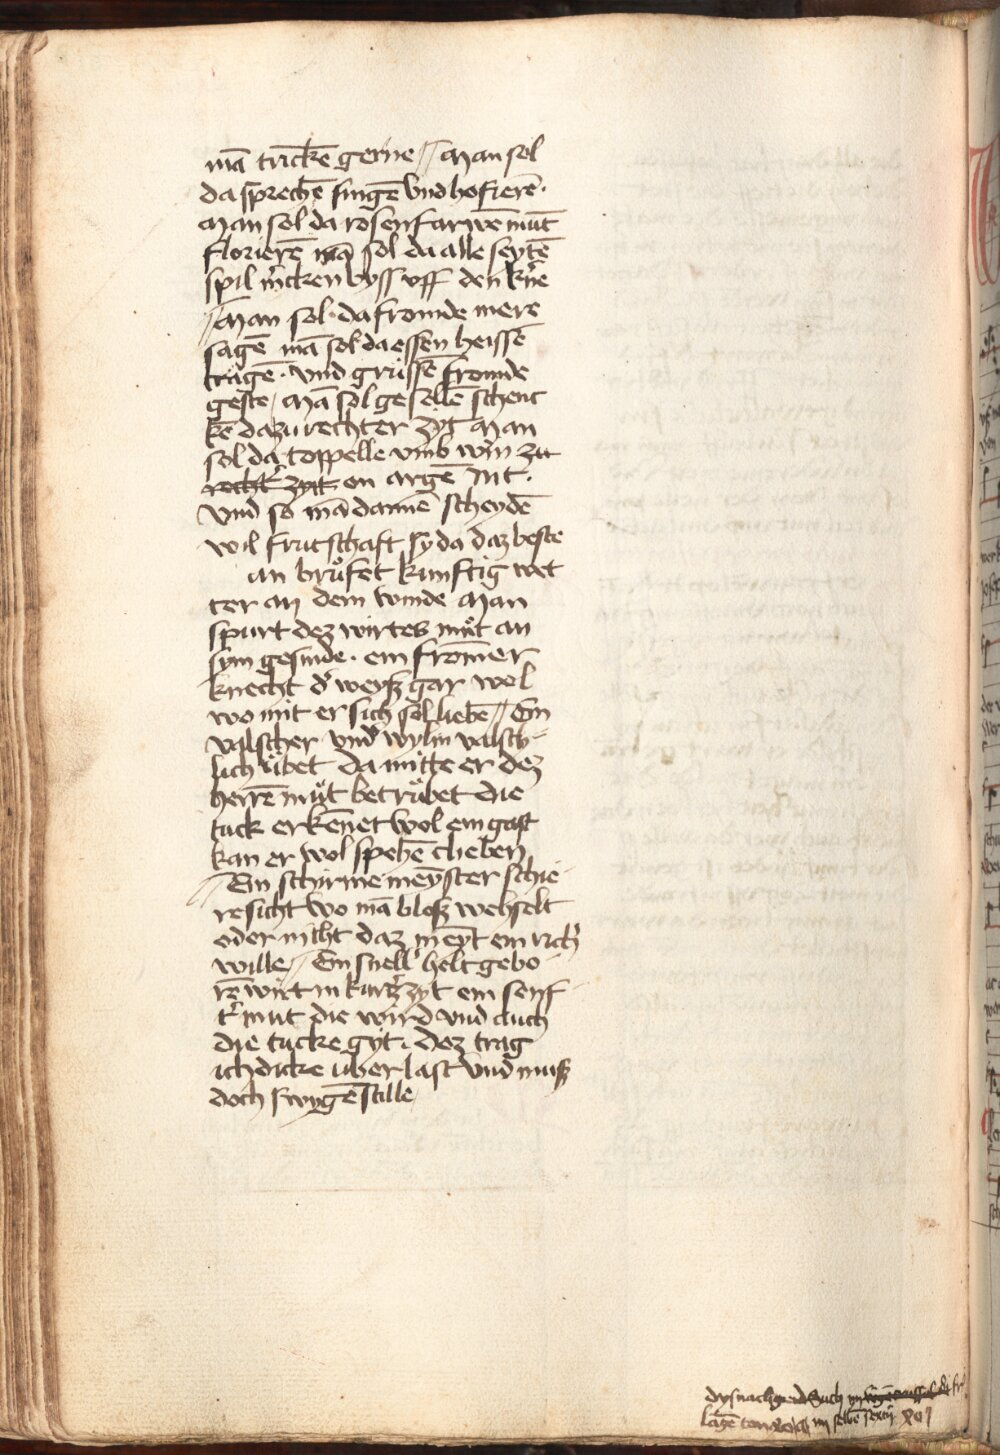 mā trickē gerne // Man sol
da sprechē singē vnd hofierē·
Man sol da rosenfarwē mūt
florierē mā sol da alle seytē
spil rᷣcken byss vff den knᷣe
// Man sol· da fromde mere
sagē mā sol da essen heissē
tragē· vnd grüssē fromde
geste / Mā sol gesellē schenc
kē da zu rechter zyt Man
sol da toppelle vmb win zu
rechtᷣ zyt on argē nit·
Vnd so mā dannē scheydē
wil fruntschaft sy da daz beste
an bruͦfet kunftig wet
ter an dem winde Man
spurt dez wirtes muͦt an
sym gesinde· ein fromer
knecht dᷣ weysz gar wol
wo mit er sich sol liebē // Ein
valscher vnd wylin valsch-
lich uͤbet da mitte er dez
herrē muͦt betruͦbet die
tuck erkēnet wol ein gast
kan er wol spehē eheben
// Ein schirme meyster schie-
re sicht wo mā blosz wehselt
oder nicht daz meyt ein richᷣ
wille // Ein snellᷣ helt gebo-
rē wirt in kurtzᷣ zyt ein senf
tᷣ mut die wird vnd auch
die tucke gyt· dez trag
ich dicke uber last vnd musz
doch swygē stille
dys nach such
lagē im selbē sextn̄ xvi